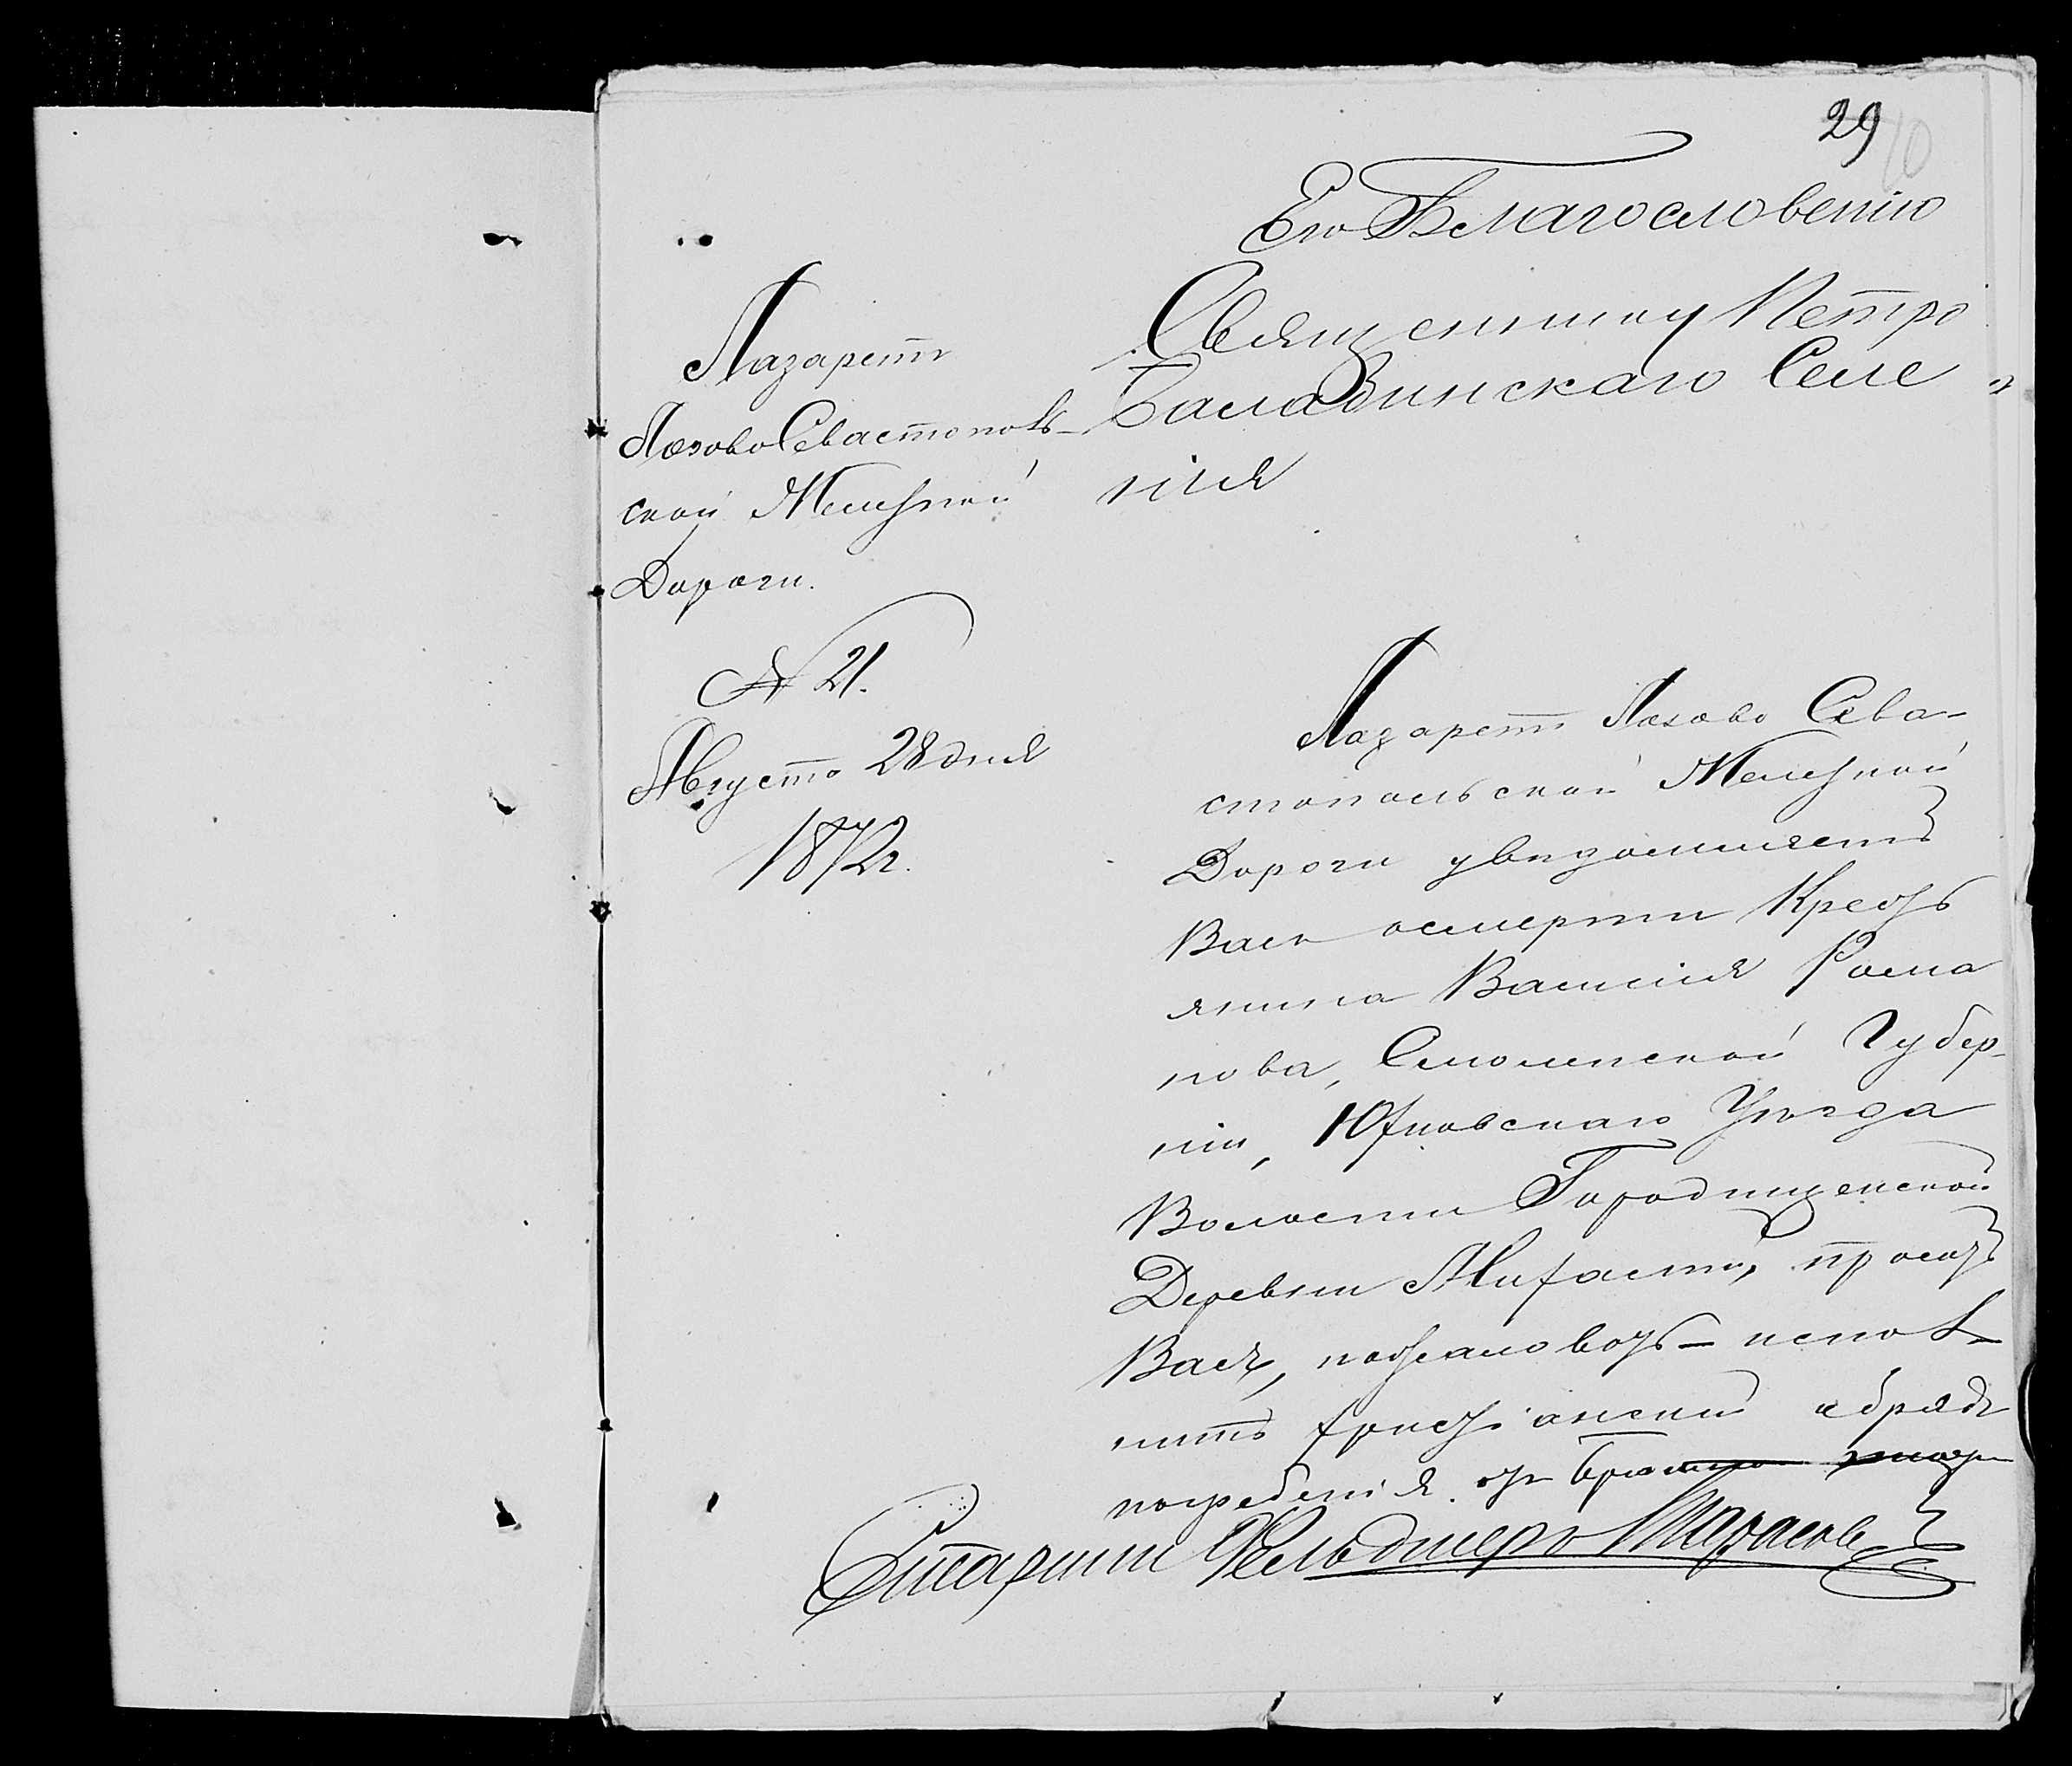 29
10
Его Благословению
Священнику Петро
Балабинскаго Селе
нія
Лазаретъ
Лозово Севастополь-
ской Желѣзной
Дороги.
№ 21.
Августа 28 дня
1872 г.
Лазаретъ Лозово Сева-
стопольской Желѣзной
Дороги увѣдомляетъ
Васъ о смерти Кресть
янина Василія Рома
нова, Смоленской Губер-
ніи, Юхновскаго Уѣзда
Волости Городищенской
Деревни проситъ
Васъ, пожаловать исполь
нить христіанскій обрядъ
погребенія. отъ
Старшій Фельдшеръ Тарасовъ